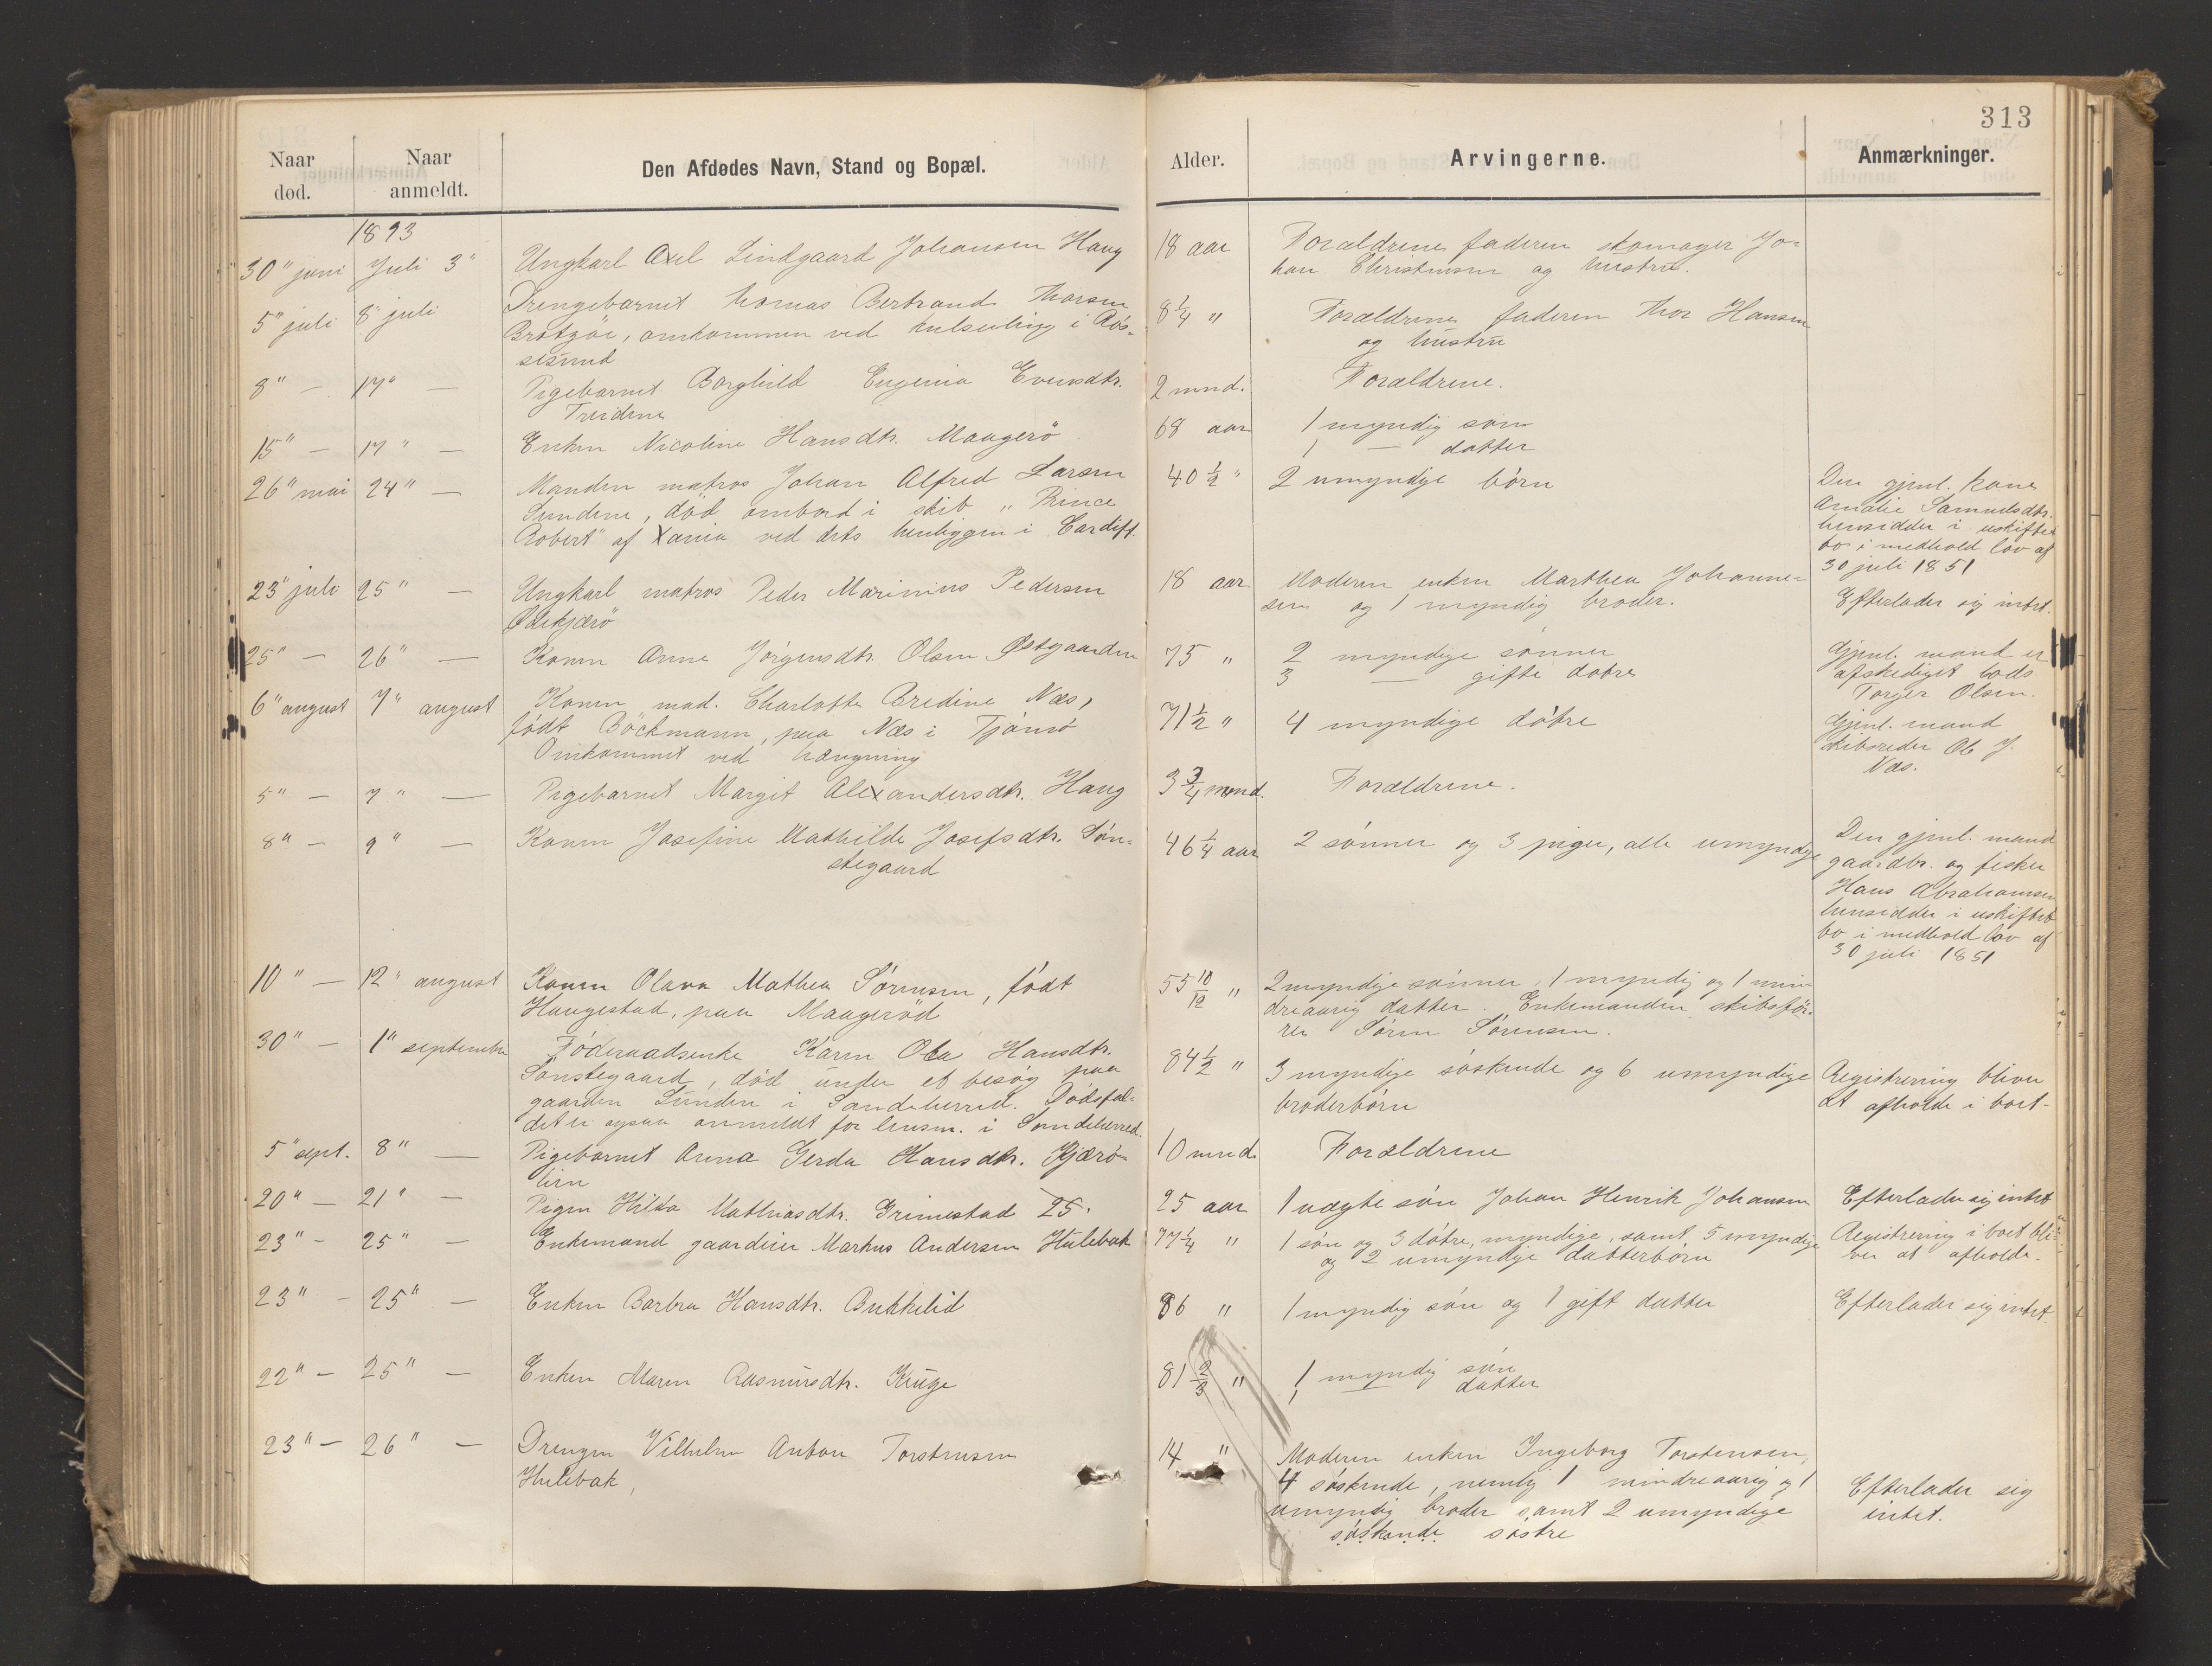 313
Naar død. Naar anmeldt. Den Afdødes Navn, Stand og Bopæl. Alder. Arvingerne. Anmærkninger.
1893
30" juni Juli 3" Ungkarl Axel Lindgaard Johansen Haug 18 aar Forældrene faderen skomager Jo-
han Christensen og hustru.
5" juli 8" juli Drengebarnet Thomas Bertrand Thorsen 8 1/4 " Forældrene faderen Thor Hansen
Brøtsøe, omkommen ved kulseiling i Røs- og hustru
sesund
8" — 17" — Pigebarnet Borghild Eugenia Evensdtr. 2 mnd. Forældrene.
Treidene
15" — 17" — Enken Nicoline Hansdtr. Maagerø 68 aar 1 myndig søn
1 — datter
26" mai 24" — Manden matros Johan Alfred Larsen 40 1/2 " 2 umyndige børn Den gjenl. kone
Sundene, død ombord i skib "Prince Amalie Samuelsdtr.
Robert" af Xania ved dets henliggen i Cardiff. hensidder i uskiftet
bo i medhold lov af
30 juli 1851
23" juli 25" — Ungkarl matros Peder Marinius Pedersen 18 aar Moderen enken Marthea Johanne-
Ødekjærø sen og 1 myndig broder. Efterlader sig intet.
25" — 26" — Konen Anne Jörgensdtr. Olsen Østgaarden 75 " 2 myndige sønner Gjenl. mand er
3 — gifte døtre afskediget lods
Torger Olsen.
6" august 7" august Konen mad. Charlotte Aredine Næs, 71 1/2 " 4 myndige døtre Gjenl. mand
født Böckmann, paa Næs i Tjømø skibsreder Ole J.
Omkommet ved hængning Næs.
5" — 7" — Pigebarnet Margit Alexandersdtr. Haug 3 3/4 mnd. Forældrene.
8" — 9" — Konen Josefine Mathilde Josefsdtr. Søn- 46 1/4 aar 2 sønner og 3 piger, alle umyndige Den gjenl. mand
stegaard gaardbr. og fisker
Hans Abrahamsen
hensidder i uskiftet
bo i medhold lov af
30 juli 1851
10" — 12" august Konen Olava Mathea Sørensen, født 55 10/12 " 2 myndige sønner, 1 myndig og 1 min-
Haugestad, paa Maagerød dreaarig datter. Enkemanden skibsfø-
rer Søren Sørensen.
30" — 1" september Föderaadsenke Karen Olea Hansdtr. 84 1/2 " 3 myndige søskende og 6 umyndige Registrering bliver
Sønstegaard, død under et besøg paa broderbørn at afholde i boet-
gaarden Lunden i Sandeherred. Dødsfal-
det er ogsaa anmeldt for lensm. i Sandeherred.
5" sept. 8" — Pigebarnet Anna Gerda Hansdtr. Kjærø- 10 mnd. Forældrene
lien
20" — 21" — Pigen Hilda Mathiasdtr. Grimestad 25. 25 aar 1 uægte søn Johan Henrik Johansen Efterlader sig intet
23" — 25" — Enkemand gaardeier Markus Andersen Hulebak 77 1/4 " 1 søn og 3 døtre, myndige, samt 5 myndige Registrering i boet bli-
og 2 umyndige datterbørn ver at afholde.
23" — 25" — Enken Barbra Hansdtr. Bukkelid 86 " 1 myndig søn og 1 gift datter Efterlader sig intet.
22" — 25" — Enken Maren Rasmusdtr. Kruge 81 2/3 " 1 myndig søn
1 — datter
23" — 26" — Drengen Vilhelm Anton Torstensen 14 " Moderen enken Ingeborg Torstensen,
Hulebak, 4 søskende, nemlig 1 mindreaarig og 1 Efterlader sig
umyndig broder samt 2 umyndige intet.
søskende søstre